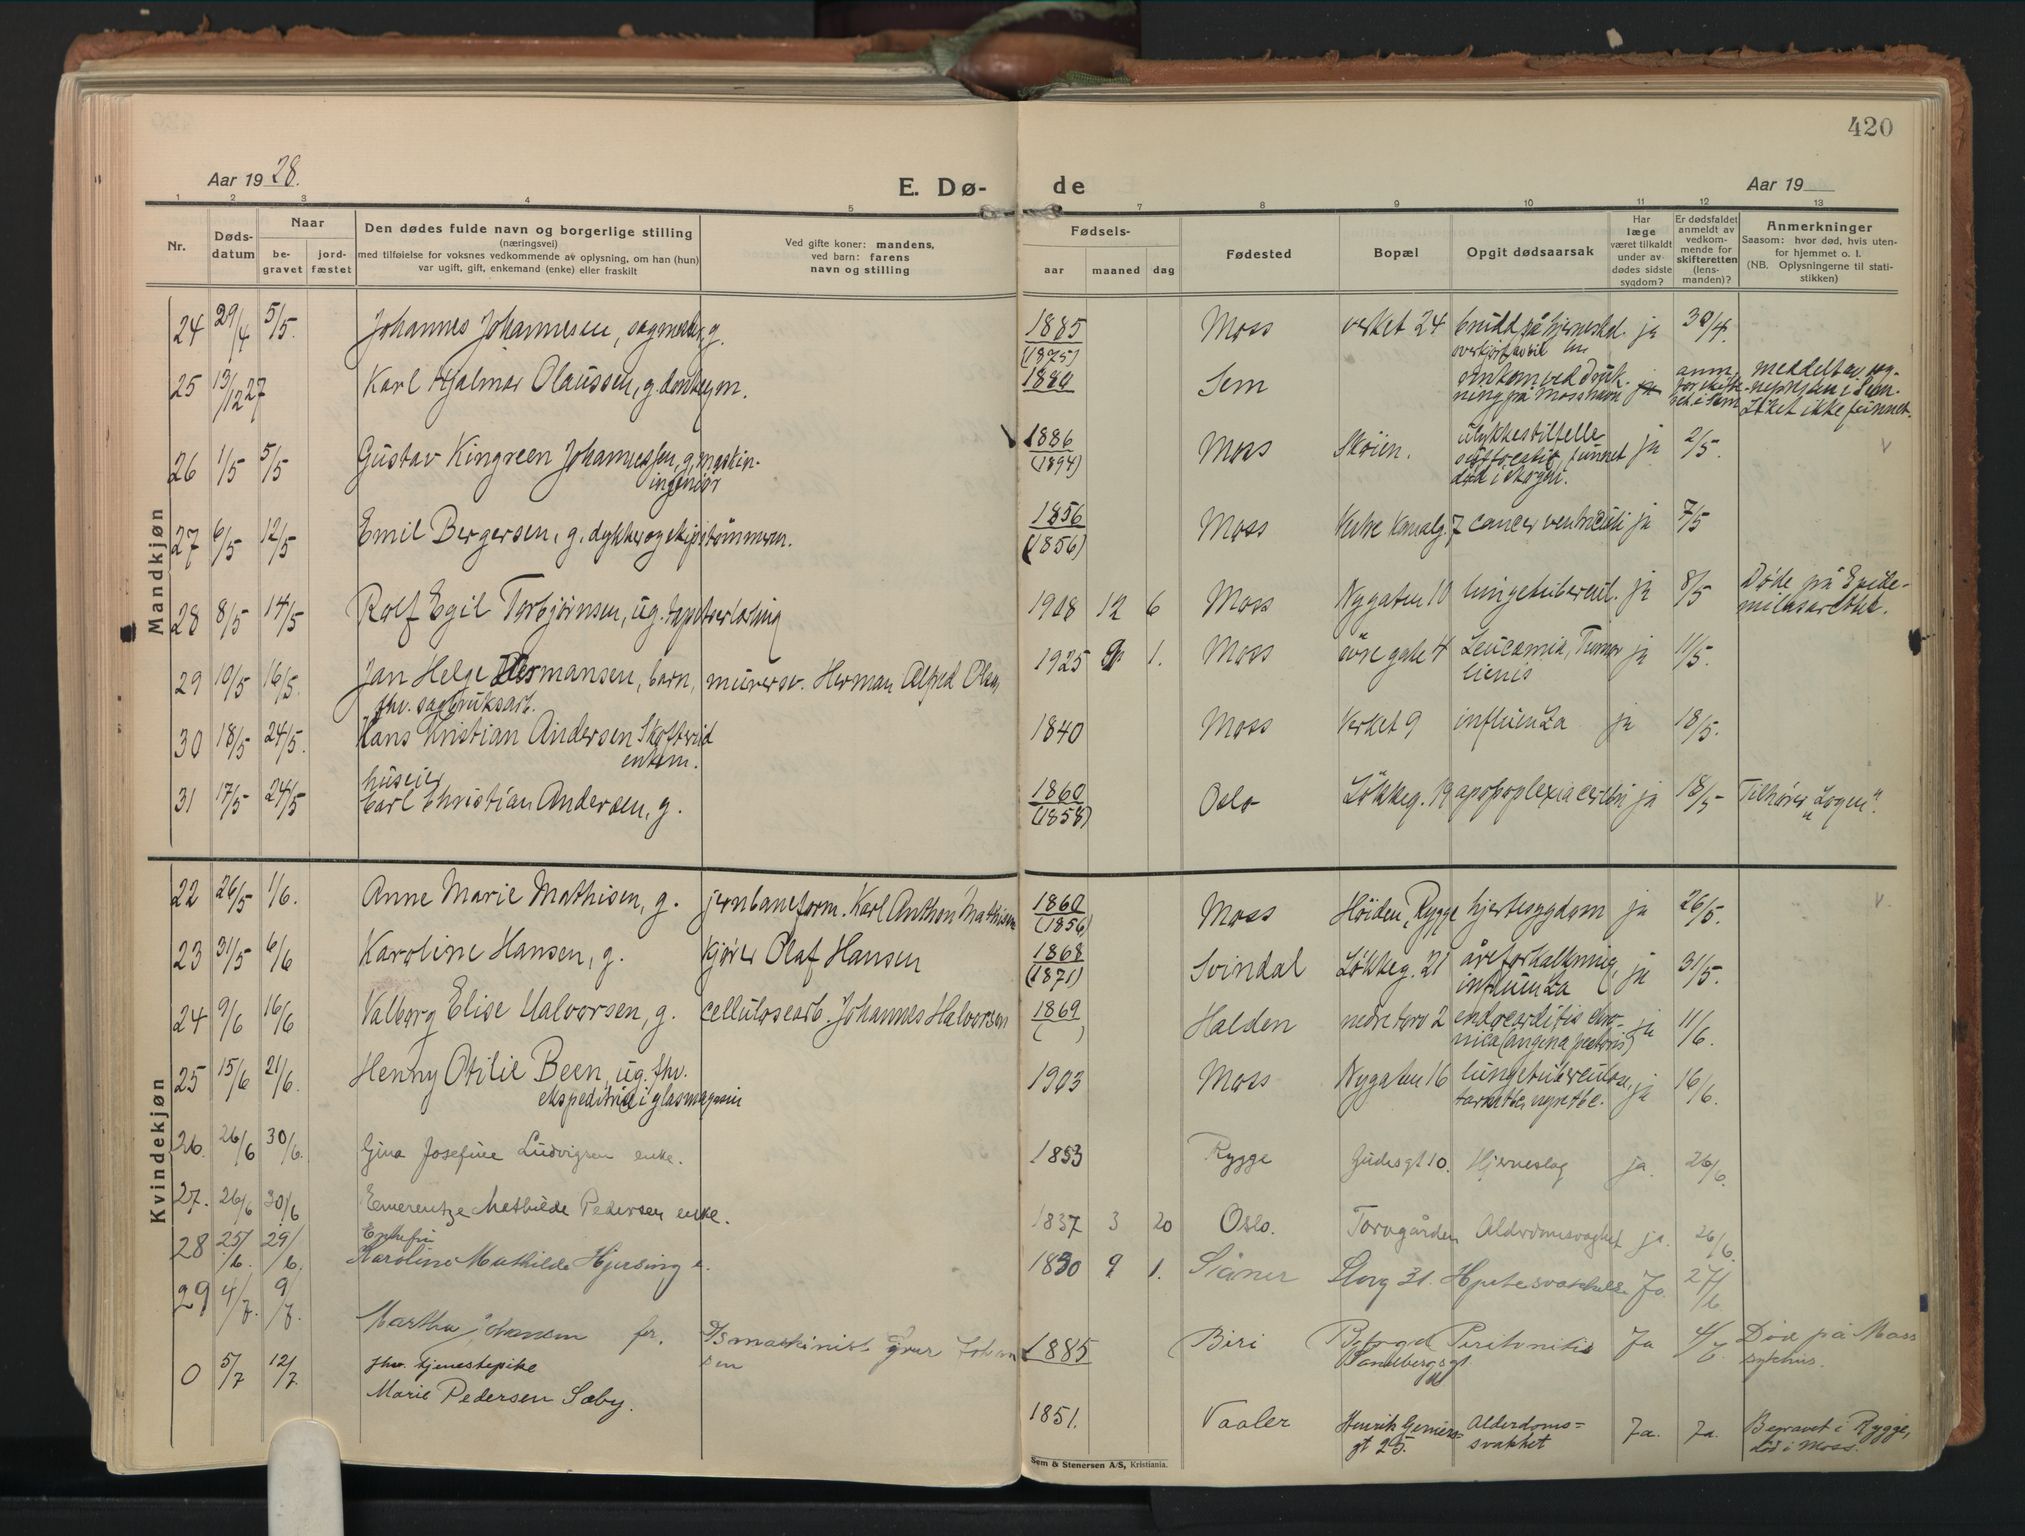 420
Aar 1928.
E. Dø-
de
Aar 19
1 2 3 4 5 7 8 9 10 11 12 13
Nr.
Døds-
datum
Naar
be-
gravet
jord-
fæstet
Den dødes fulde navn og borgerlige stilling
(næringsvei)
med tilføielse for voksnes vedkommende av oplysning, om han (hun)
var ugift, gift, enkemand (enke) eller fraskilt
Ved gifte koner: mandens,
ved barn: farens
navn og stilling
Fødsels-
aar maaned dag
Fødested
Bopæl
Opgit dødsaarsak
Har
læge
været tilkaldt
under av-
dødes sidste
sygdom?
Er dødsfaldet
anmeldt av
vedkom-
mende for
skifteretten
(lens-
manden)?
Anmerkninger
Saasom: hvor død, hvis uten-
for hjemmet o. l.
(NB. Oplysningerne til stati-
stikken)
Mandkjøn
24 29/4 5/5. Johannes Johannesen, g. 1885 (1875) Moss verket 24 brudd på hjerneskal. ja 30/4.
25 13/12 27 Karl Hjalmar Olaussen, g. donkeym. 1880 Sem omkom ved druk-
ning på Moss havn ja anm. meddelt av sog-
nepresten i Sem.
Liket ikke funnet.
26 1/5 5/5 Gustav Kingreen Johannessen, g. maskin-
ingeniør 1886 (1894) Moss Skøien. ulykkestilfelle
suffocatio, funnet
død i skogen. ja 2/5.
27 6/5 12/5 Emil Bergersen, g. dykker og skipstømmerm. 1856 (1856) Moss Vestre Kanalg. 7 cancer ventriculi ja 7/5
28 8/5 14/5 Rolf Egil Torbjørnsen, ug. tapetserlærling 1908 12 6 Moss Nygaten 10 lungetubercul. ja 8/5 Døde på Epide-
milasarettet.
29 10/5 16/5. Jan Helge Hermansen, barn, murersv. Herman Alfred Olsen 1925 1. Moss øvre gate 4 Leucamia, Tumor
lienis ja 11/5.
fhv. sagbruksarb.
30 18/5 24/5. Hans Kristian Andersen Skofterud
enkem. 1840 Moss Verket 9 influenza ja 18/5.
huseier
31 17/5 24/5 Carl Christian Andersen, g. 1860 (1858) Oslo Løkkeg. 19 apopoplexia cerebri ja 18/5 Tilhører "Logen".
Kvindekjøn
22 26/5 1/6. Anne Marie Mathisen, g. jernbaneform. Karl Anthon Mathisen 1860 (1856) Moss Høiden, Rygge hjertesygdom ja 26/5.
23 31/5 6/6 Karoline Hansen, g. kjører Olaf Hansen 1868 (1871) Svindal Løkkeg. 21 åreforkalkning,
influenza ja 31/5.
24 9/6 16/6 Valborg Elise Halvorsen, g. cellulosearb. Johannes Halvorsen 1869 ( ) Halden nedre torv 2 endocarditis chro-
nica (angina pectoris) ja 11/6.
25 15/6 21/6. Henny Otilie Been, ug. fhv.
ekspeditrise i glasmagasin 1903 Moss Nygaten 16 lungetuberculose,
tarmtbc, nyretbc. ja 16/6.
26. 26/6 30/6. Gina Josefine Ludvigsen enke. 1853 Rygge Gudesgt 10. Hjerneslag ja. 26/6.
27. 26/6 30/6 Emerentze Methilde Pedersen enke. 1837 3 20 Oslo. Torvgården Alderdomssvaghet ja. 26/6.
Enkefru
28 25/6. 29/6. Karoline Mathilde Hjersing e. 1830 9 1. Storg 31. Hjertesvakhet Ja. 27/6.
29 4/7. 9/7. Martha Johansen fr. maskinist Johan
sen 1885 Biri Peritonitis Ja 4/7. Død på Moss
sykehus.
0 5/7 12/7. fhv. tjenestepike
Marie Pedersen Sæby. 1851. Vaaler Henrik Gerners-
gt 25. Alderdoms=
svakhet Ja. Ja. Begravet i Rygge,
død i Moss.
Sem & Stenersen A/S, Kristiania.